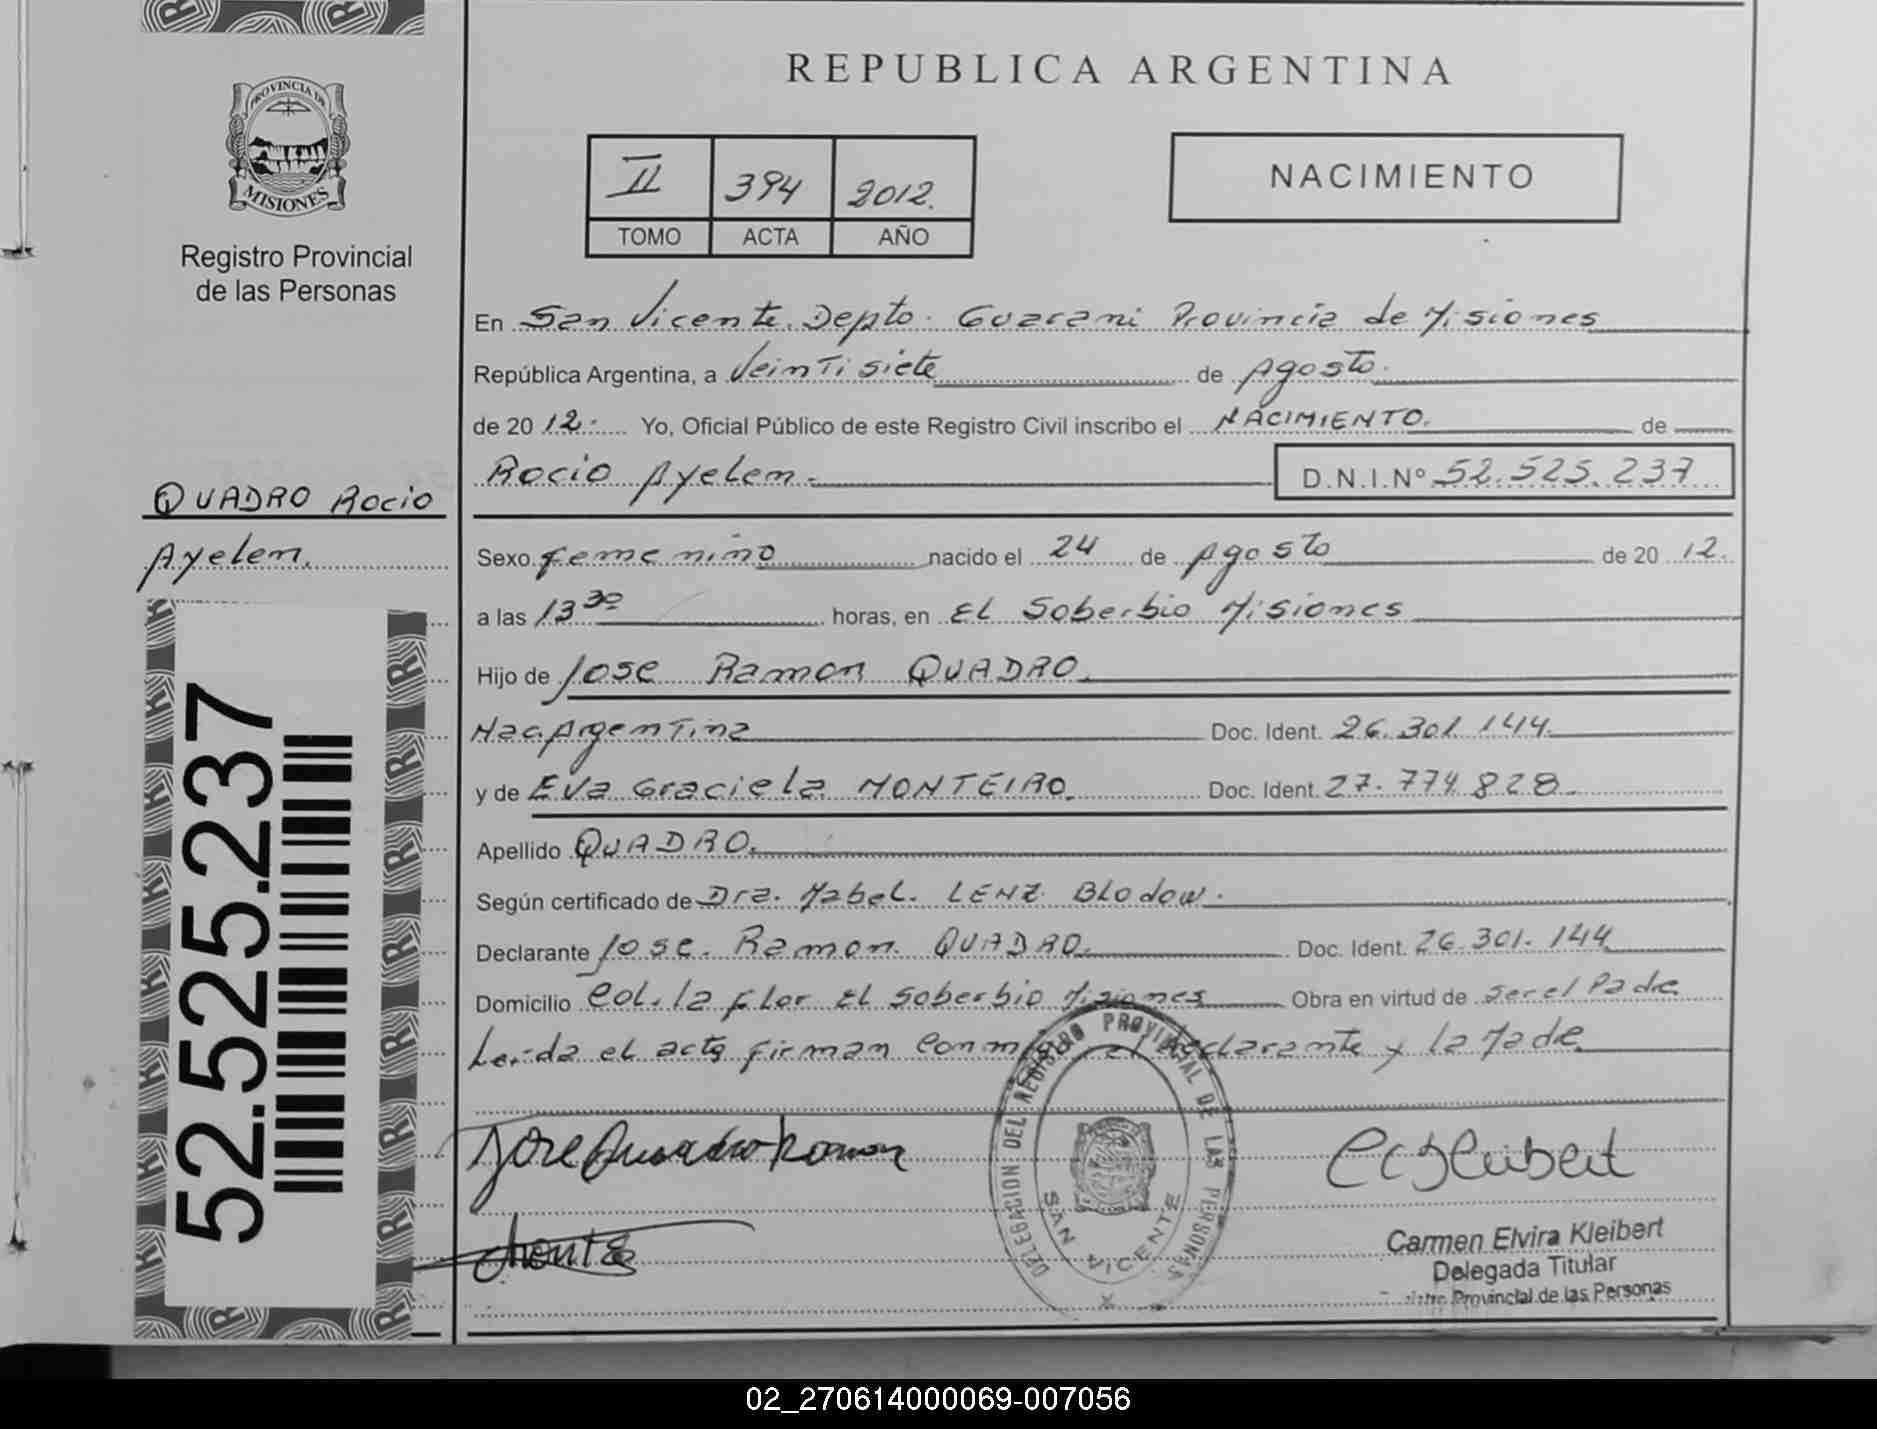 REPUBLICA ARGENTINA
PROVINCIA DE
MISIONES
Registro Provincial
de las Personas
II 394 2012.
TOMO ACTA AÑO
NACIMIENTO
En San Vicente. Depto. Guarani Provincia de Misiones
República Argentina, a Veintisiete de Agosto.
de 20 12. Yo, Oficial Público de este Registro Civil inscribo el NACIMIENTO. de
Rocio Ayelem. D.N.I.Nº 52.525.237
QUADRO Rocio
Ayelem.
Sexo femenino nacido el 24 de Agosto de 20 12.
a las 13 30 horas, en El Soberbio Misiones
Hijo de Jose Ramon QUADRO.
Nac. Argentina Doc. Ident. 26.301.144.
y de Eva Graciela MONTEIRO. Doc. Ident. 27.774.828.
Apellido QUADRO.
Según certificado de Dra. Mabel. LENZ BLodow.
Declarante Jose. Ramon. QUADRO. Doc. Ident. 26.301.144
Domicilio Col. la flor El Soberbio Misiones Obra en virtud de ser el Padre
Leida el acta firman conmigo el declarante y la Madre
52.525.237
Jose Quadro Ramon
DELEGACION DEL REGISTRO PROVINCIAL DE LAS PERSONAS
SAN VICENTE
Carmen Elvira Kleibert
Delegada Titular
Provincial de las Personas
02_270614000069-007056